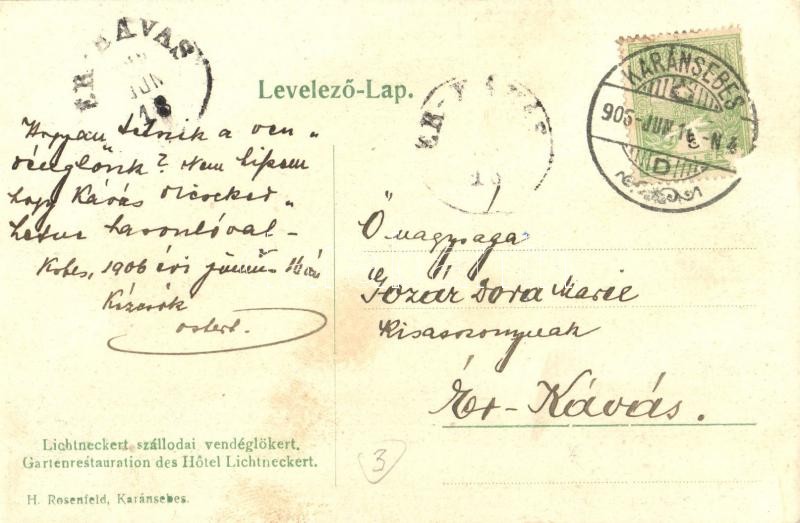 ER-KAVAS
JUN
18
Levelező-Lap.
KARÁNSEBES
905-JUN. -N4
D
Hogyan tetszik a ven„
déglőnk? Nem hiszem
hogy Kávás dicseked„
hetne hasonlóval -
Ksbes, 1906 évi június
Kézcsók
Ő nagysága
Gozár Dora Marie
Kisasszonynak
Ér-Kávás.
Lichtneckert szállodai vendéglőkert.
Gartenrestauration des Hôtel Lichtneckert.
H. Rosenfeld, Karánsebes.
3